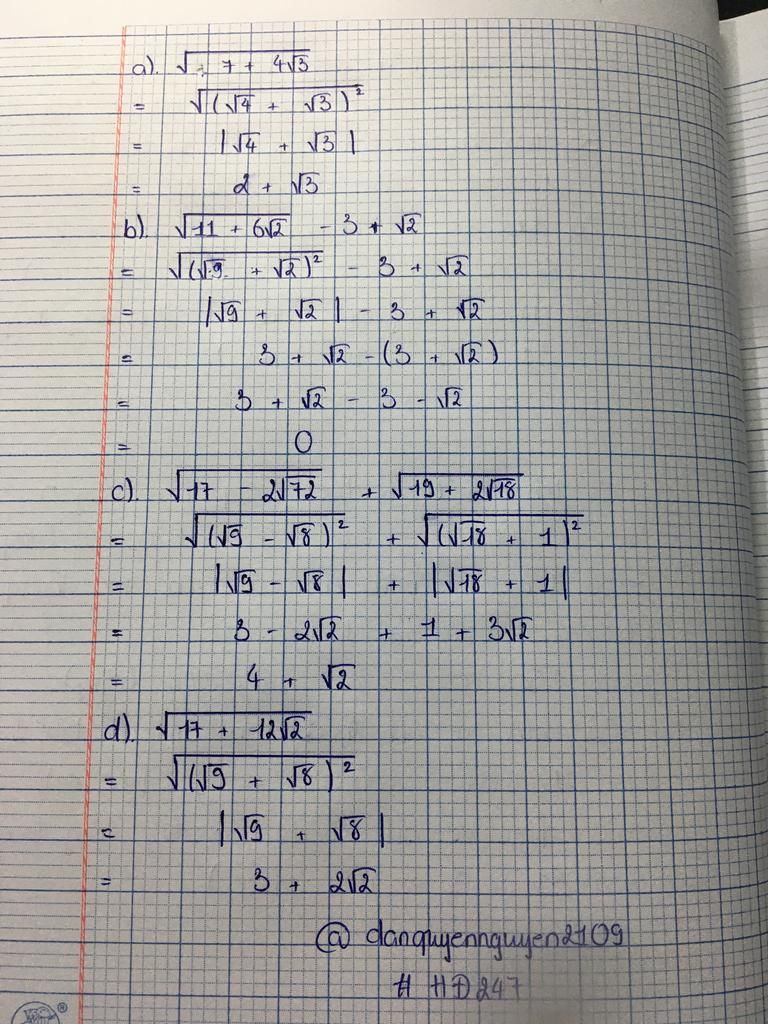 a). √(7 + 4√3)
= √((√4 + √3)²)
= |√4 + √3|
= 2 + √3
b). √(11 + 6√2) - 3 + √2
= √((√9 + √2)²) - 3 + √2
= |√9 + √2| - 3 + √2
= 3 + √2 - (3 + √2)
= 3 + √2 - 3 - √2
= 0
c). √(17 - 2√72) + √(19 + 2√18)
= √((√9 - √8)²) + √((√18 + 1)²)
= |√9 - √8| + |√18 + 1|
= 3 - 2√2 + 1 + 3√2
= 4 + √2
d). √(17 + 12√2)
= √((√9 + √8)²)
= |√9 + √8|
= 3 + 2√2
@ danquyennguyen2109
# HD247